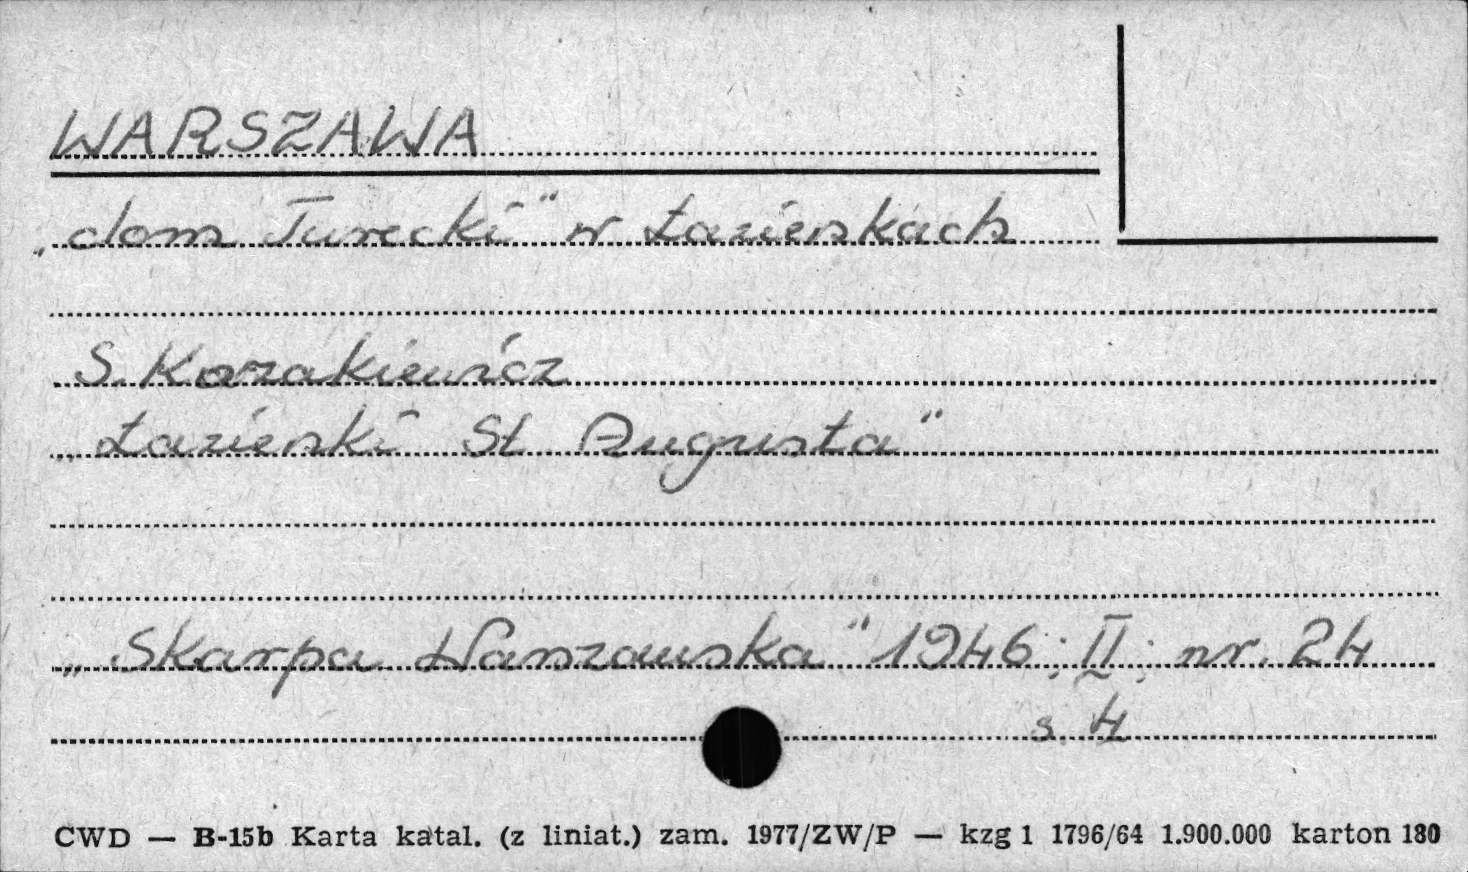 WARSZAWA
„dom Turecki" w Łazienkach
S. Kozakiewicz
„Łazienki St Augusta"
„Skarpa Warszawska" 1946; II; nr. 24
s. 4
CWD — B-15b Karta katal. (z liniat.) zam. 1977/ZW/P — kzg 1 1796/64 1.900.000 karton 180